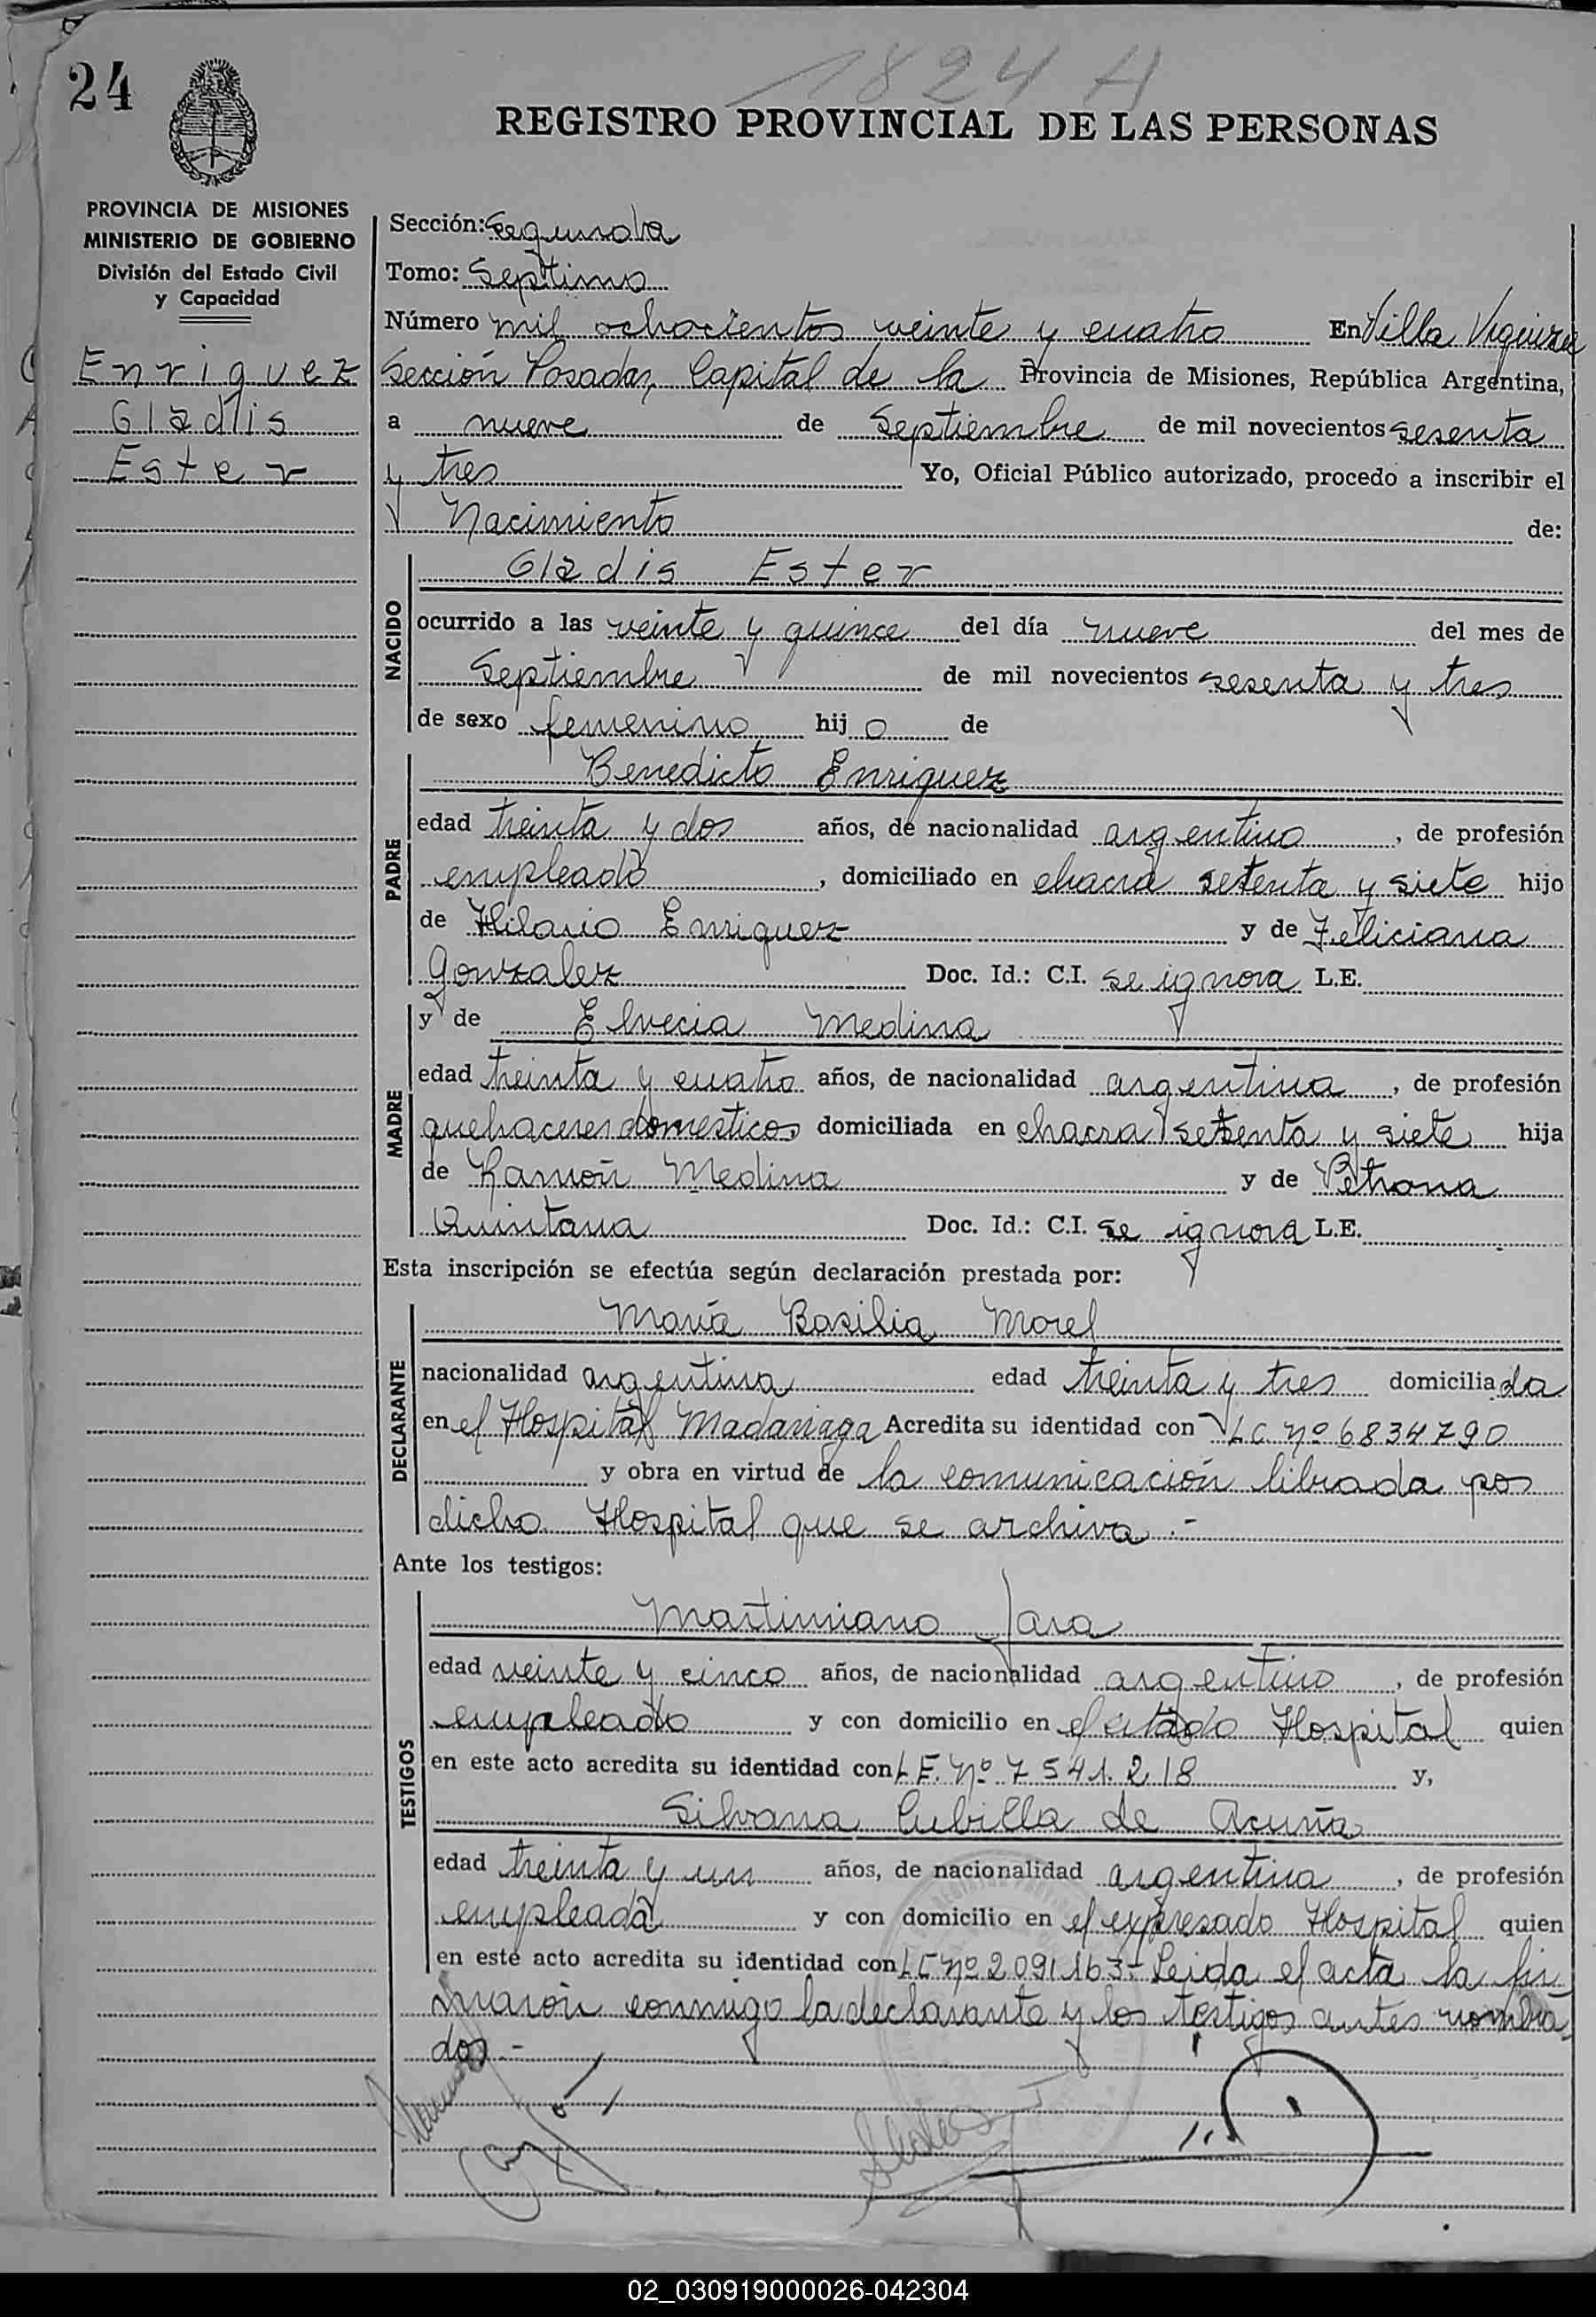 1824 H
24
REGISTRO PROVINCIAL DE LAS PERSONAS
PROVINCIA DE MISIONES
MINISTERIO DE GOBIERNO
División del Estado Civil
y Capacidad
Enriquez
Gladis
Ester
Sección: Segunda
Tomo: Septimo
Número mil ochocientos veinte y cuatro En Villa Urquiza
Sección Posadas, Capital de la Provincia de Misiones, República Argentina,
a nueve de Septiembre de mil novecientos sesenta
y tres Yo, Oficial Público autorizado, procedo a inscribir el
Nacimiento de:
NACIDO
Gladis Ester
ocurrido a las veinte y quince del día nueve del mes de
Septiembre de mil novecientos sesenta y tres
de sexo femenino hij o de
PADRE
Benedicto Enriquez
edad treinta y dos años, de nacionalidad argentino, de profesión
empleado, domiciliado en chacra setenta y siete hijo
de Hilario Enriquez y de Feliciana
Gonzalez Doc. Id.: C.I. se ignora L.E.
MADRE
y de Elvecia Medina
edad treinta y cuatro años, de nacionalidad argentina, de profesión
quehaceres domesticos domiciliada en chacra setenta y siete hija
de Ramón Medina y de Petrona
Quintana Doc. Id.: C.I. se ignora L.E.
Esta inscripción se efectúa según declaración prestada por:
DECLARANTE
María Basilia Morel
nacionalidad argentina edad treinta y tres domiciliada
en el Hospital Madariaga Acredita su identidad con LC. Nº 6834790
y obra en virtud de la comunicación librada por
dicho Hospital que se archiva.-
Ante los testigos:
TESTIGOS
Martimiano Jara
edad veinte y cinco años, de nacionalidad argentino, de profesión
empleado y con domicilio en el citado Hospital quien
en este acto acredita su identidad con L E. Nº 7541.218 y,
Silvana Cubilla de Acuña
edad treinta y un años, de nacionalidad argentina, de profesión
empleada y con domicilio en el expresado Hospital quien
en este acto acredita su identidad con LC Nº 2091163- Leida el acta la fir
maron conmigo la declarante y los testigos antes nombra
dos.-
02_030919000026-042304